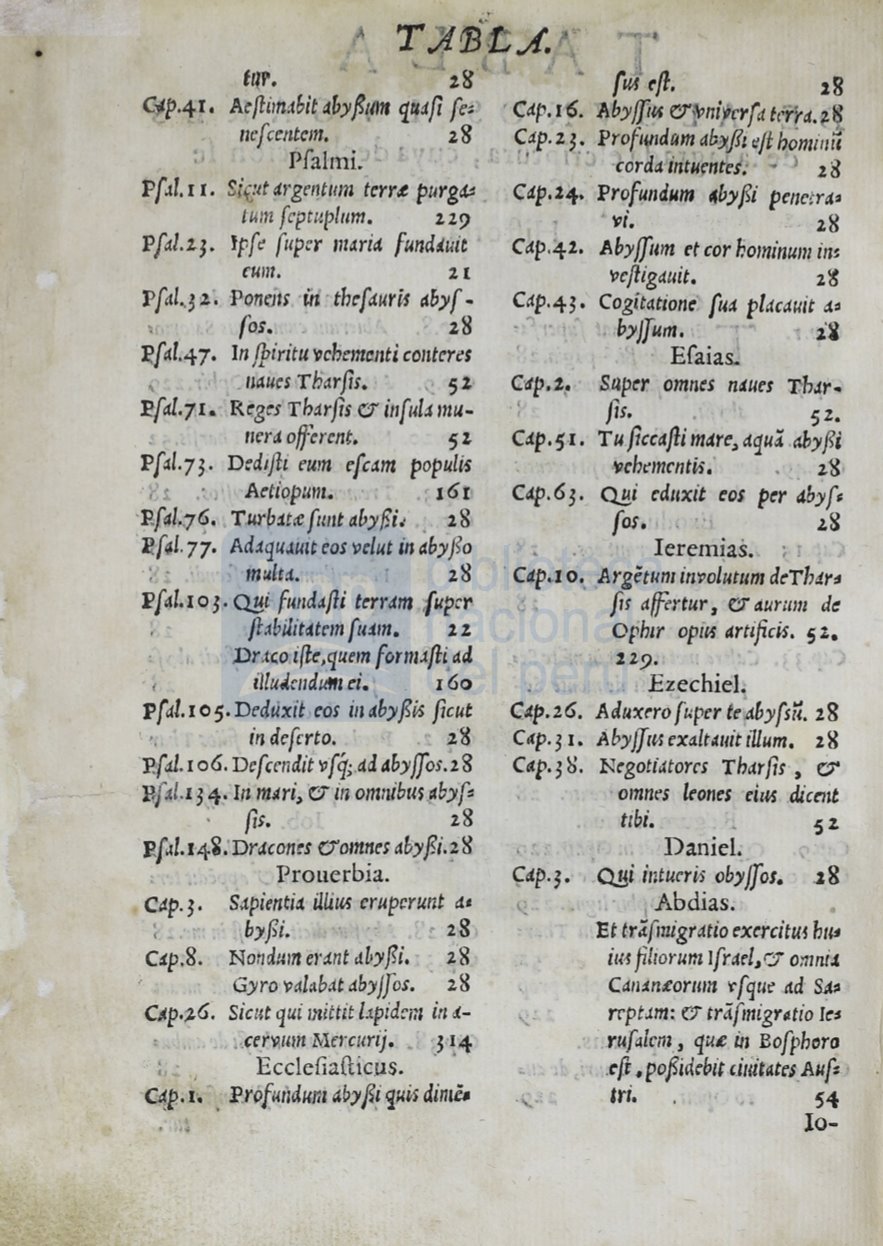 TABLA.
tur. 28
Cap.41. Aestimabit abyßum quasi se=
nescentem. 28
Psalmi.
Psal.11. Sicut argentum terræ purga=
tum septuplum. 229
Psal.23. Ipse super maria fundauit
eum. 21
Psal.32. Ponens in thesauris abys-
sos. 28
Psal.47. In spiritu vehementi conteres
naues Tharsis. 52
Psal.71. Reges Tharsis & insula mu-
nera offerent. 52
Psal.73. Dedisti eum escam populis
Aetiopum. 161
Psal.76. Turbatæ sunt abyßi. 28
Psal.77. Adaquauit eos velut in abyßo
multa. 28
Psal.103. Qui fundasti terram super
stabilitatem suam. 22
Draco iste, quem formasti ad
illudendum ei. 160
Psal.105. Deduxit eos in abyßis sicut
in deserto. 28
Psal.106. Descendit vsq; ad abyssos. 28
Psal.134. In mari, & in omnibus abys=
sis. 28
Psal.148. Dracones & omnes abyßi. 28
Prouerbia.
Cap.3. Sapientia illius eruperunt a=
byßi. 28
Cap.8. Nondum erant abyßi. 28
Gyro valabat abyssos. 28
Cap.26. Sicut qui mittit lapidem in a-
ceruum Mercurij. 314
Ecclesiasticus.
Cap.1. Profundum abyßi quis dimē=
sus est. 28
Cap.16. Abyssus & vniversa terra. 28
Cap.23. Profundum abyßi est hominū
corda intuentes. 28
Cap.24. Profundum abyßi penetra=
vi. 28
Cap.42. Abyssum et cor hominum in=
vestigauit. 28
Cap.43. Cogitatione sua placauit a=
byssum. 28
Esaias.
Cap.2. Super omnes naues Thar-
sis. 52.
Cap.51. Tu siccasti mare, aquā abyßi
vehementis. 28
Cap.63. Qui eduxit eos per abys=
sos. 28
Ieremias.
Cap.10. Argētum involutum de Thar=
sis affertur, & aurum de
Ophir opus artificis. 52.
229.
Ezechiel.
Cap.26. Aduxero super te abyssū. 28
Cap.31. Abyssus exaltauit illum. 28
Cap.38. Negotiatores Tharsis, &
omnes leones eius dicent
tibi. 52
Daniel.
Cap.3. Qui intueris obyssos. 28
Abdias.
Et trāsmigratio exercitus hu=
ius filiorum Israel, & omnia
Cananæorum vsque ad Sa=
reptam: & trāsmigratio Ie=
rusalem, quæ in Bosphoro
est, poßidebit ciuitates Aus=
tri. 54
Io-